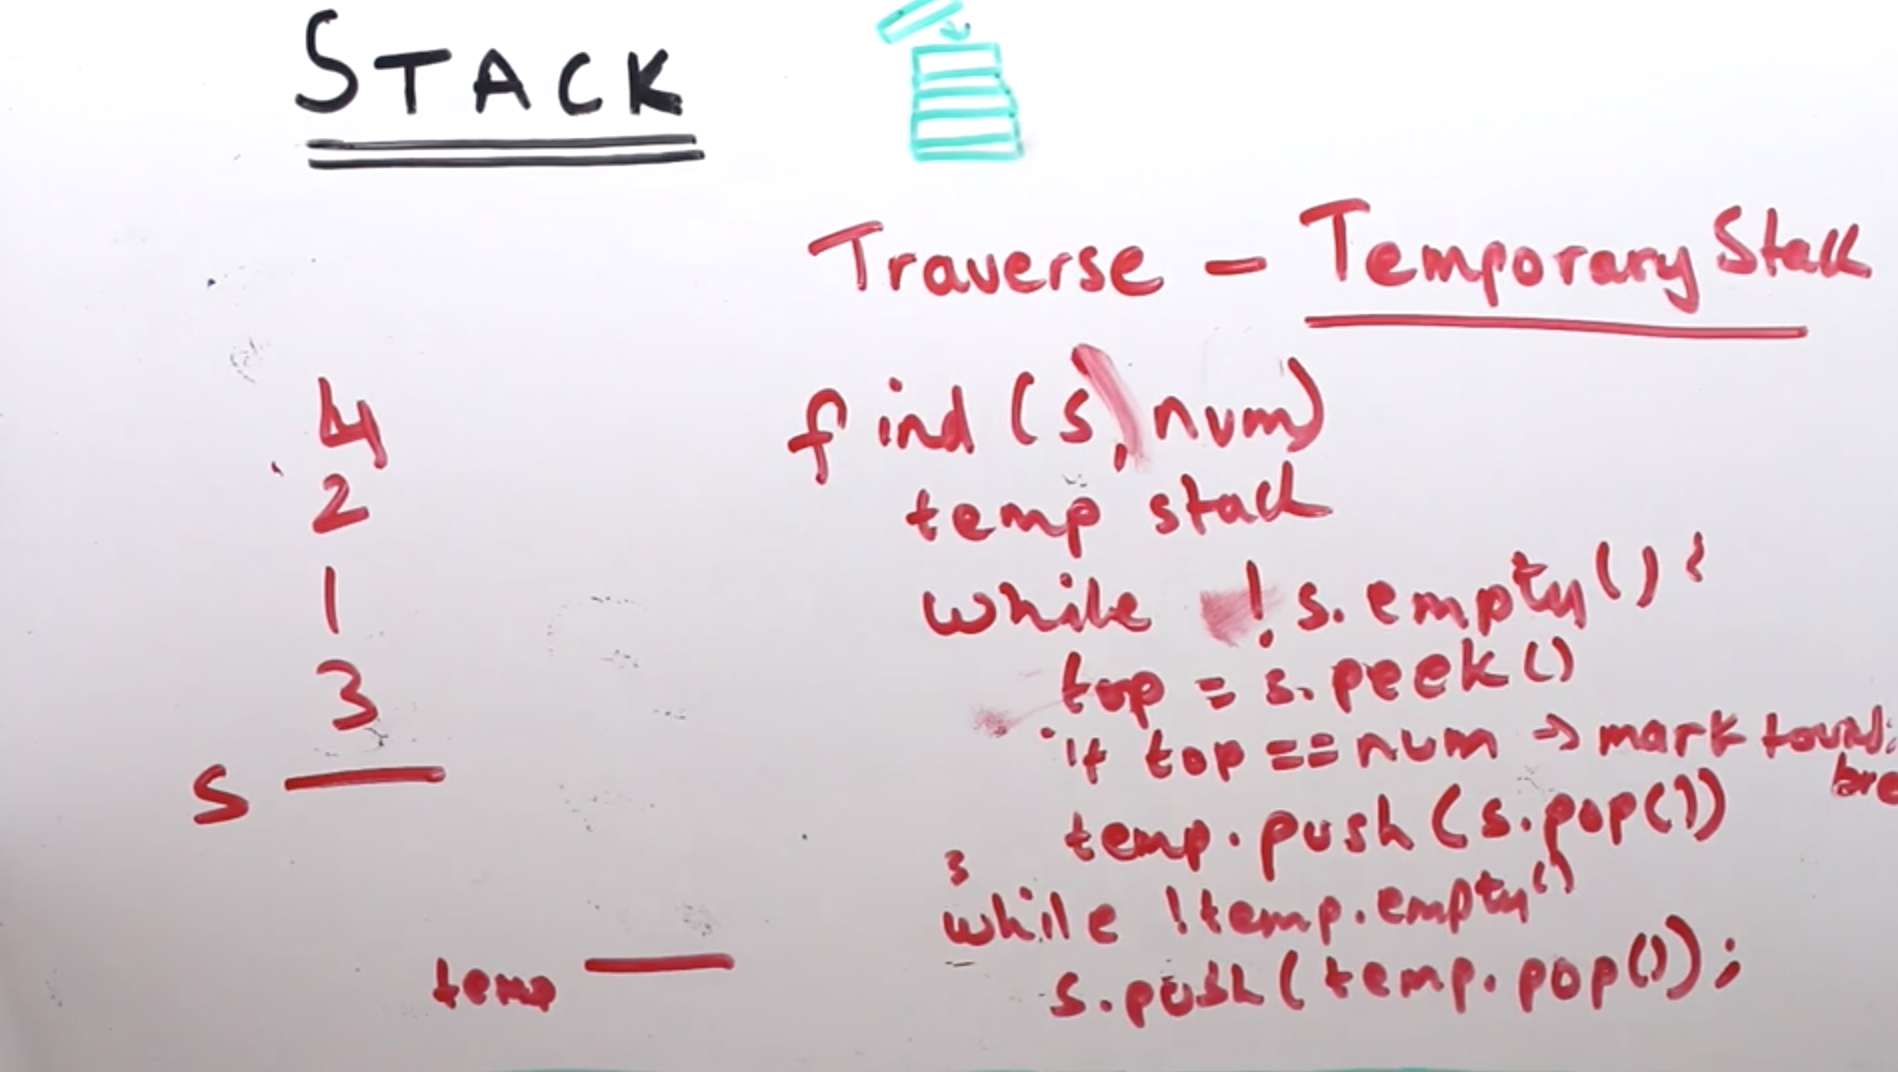 STACK
Traverse - Temporary Stack
4
2
1
3
s
temp
find (s, num)
temp stack
while !s.empty() {
top = s.peek()
if top == num → mark found;
bre
temp.push(s.pop())
}
while !temp.empty()
s.push(temp.pop());